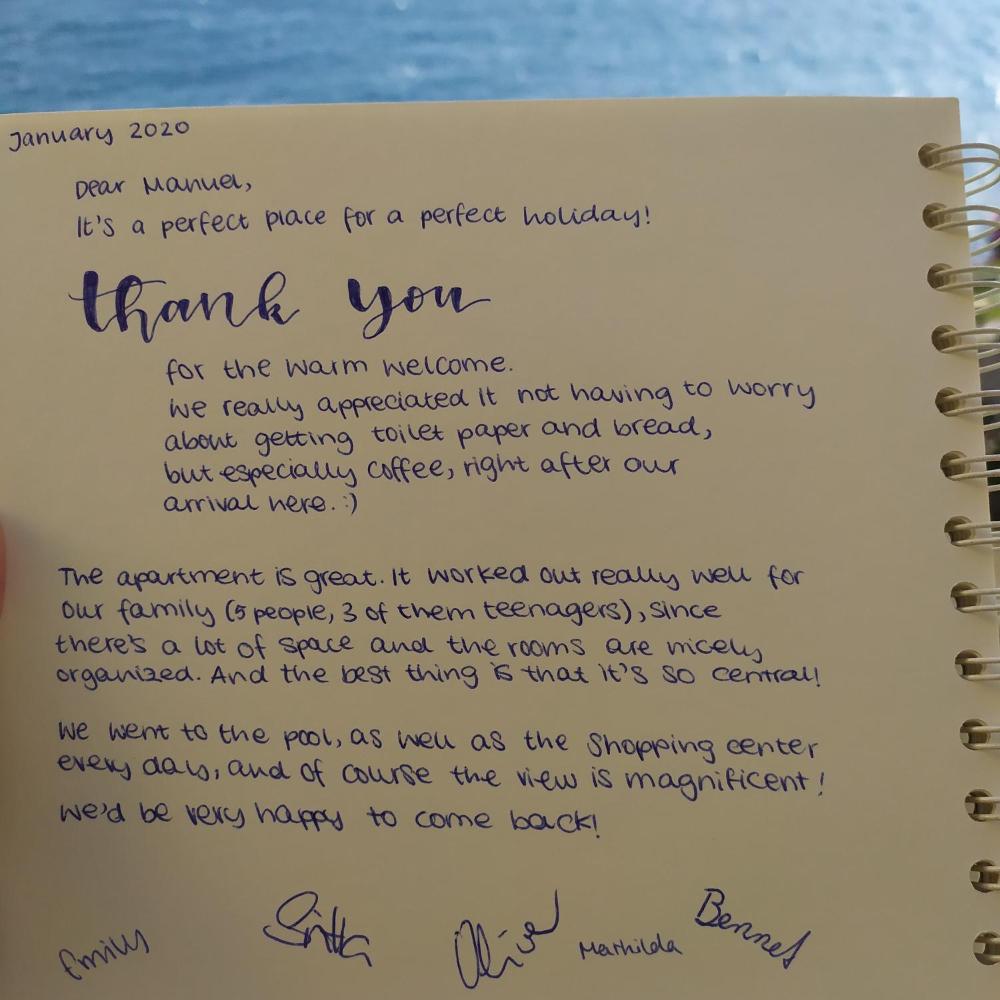 January 2020
Dear Manuel,
It's a perfect place for a perfect holiday!
thank you
for the warm welcome.
We really appreciated it not having to worry
about getting toilet paper and bread,
but especially coffee, right after our
arrival here. :)
The apartment is great. It worked out really well for
our family (5 people, 3 of them teenagers), since
there's a lot of space and the rooms are nicely
organized. And the best thing is that it's so central!
We went to the pool, as well as the shopping center
every day, and of course the view is magnificent!
We'd be very happy to come back!
Emily Oliver Mathilda Bennet